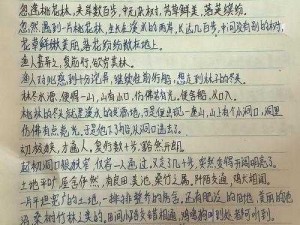 忽逢桃花林，夹岸数百步，中无杂树，芳草鲜美，落英缤纷
忽然遇到一片桃花林，生长在溪流的两岸，长达几百步，中间没有别的树，
花草鲜嫩美丽，落花纷纷散在地上。
渔人甚异之，复前行，欲穷其林。
渔人对此感到十分诧异，继续往前行船，想走到林子的尽头。
林尽水源，便得一山，山有小口，仿佛若有光，便舍船，从口入。
桃林的尽头就是溪水的发源地，于是便出现一座山，山上有个小洞口，洞里
仿佛有点亮光。于是他下了船，从洞口进去了。
初极狭，才通人，复行数十步，豁然开朗。
起初洞口很狭窄，仅容一人通过，又走了几十步，突然变得开阔明亮了。
土地平旷，屋舍俨然，有良田美池，桑竹之属，阡陌交通，鸡犬相闻。
一片平坦宽广的土地，一排排整齐的房舍，还有肥沃的田地，美丽的池
沼，桑树竹林之类的。田间小路交错相通，鸡鸣狗叫到处都可听到。